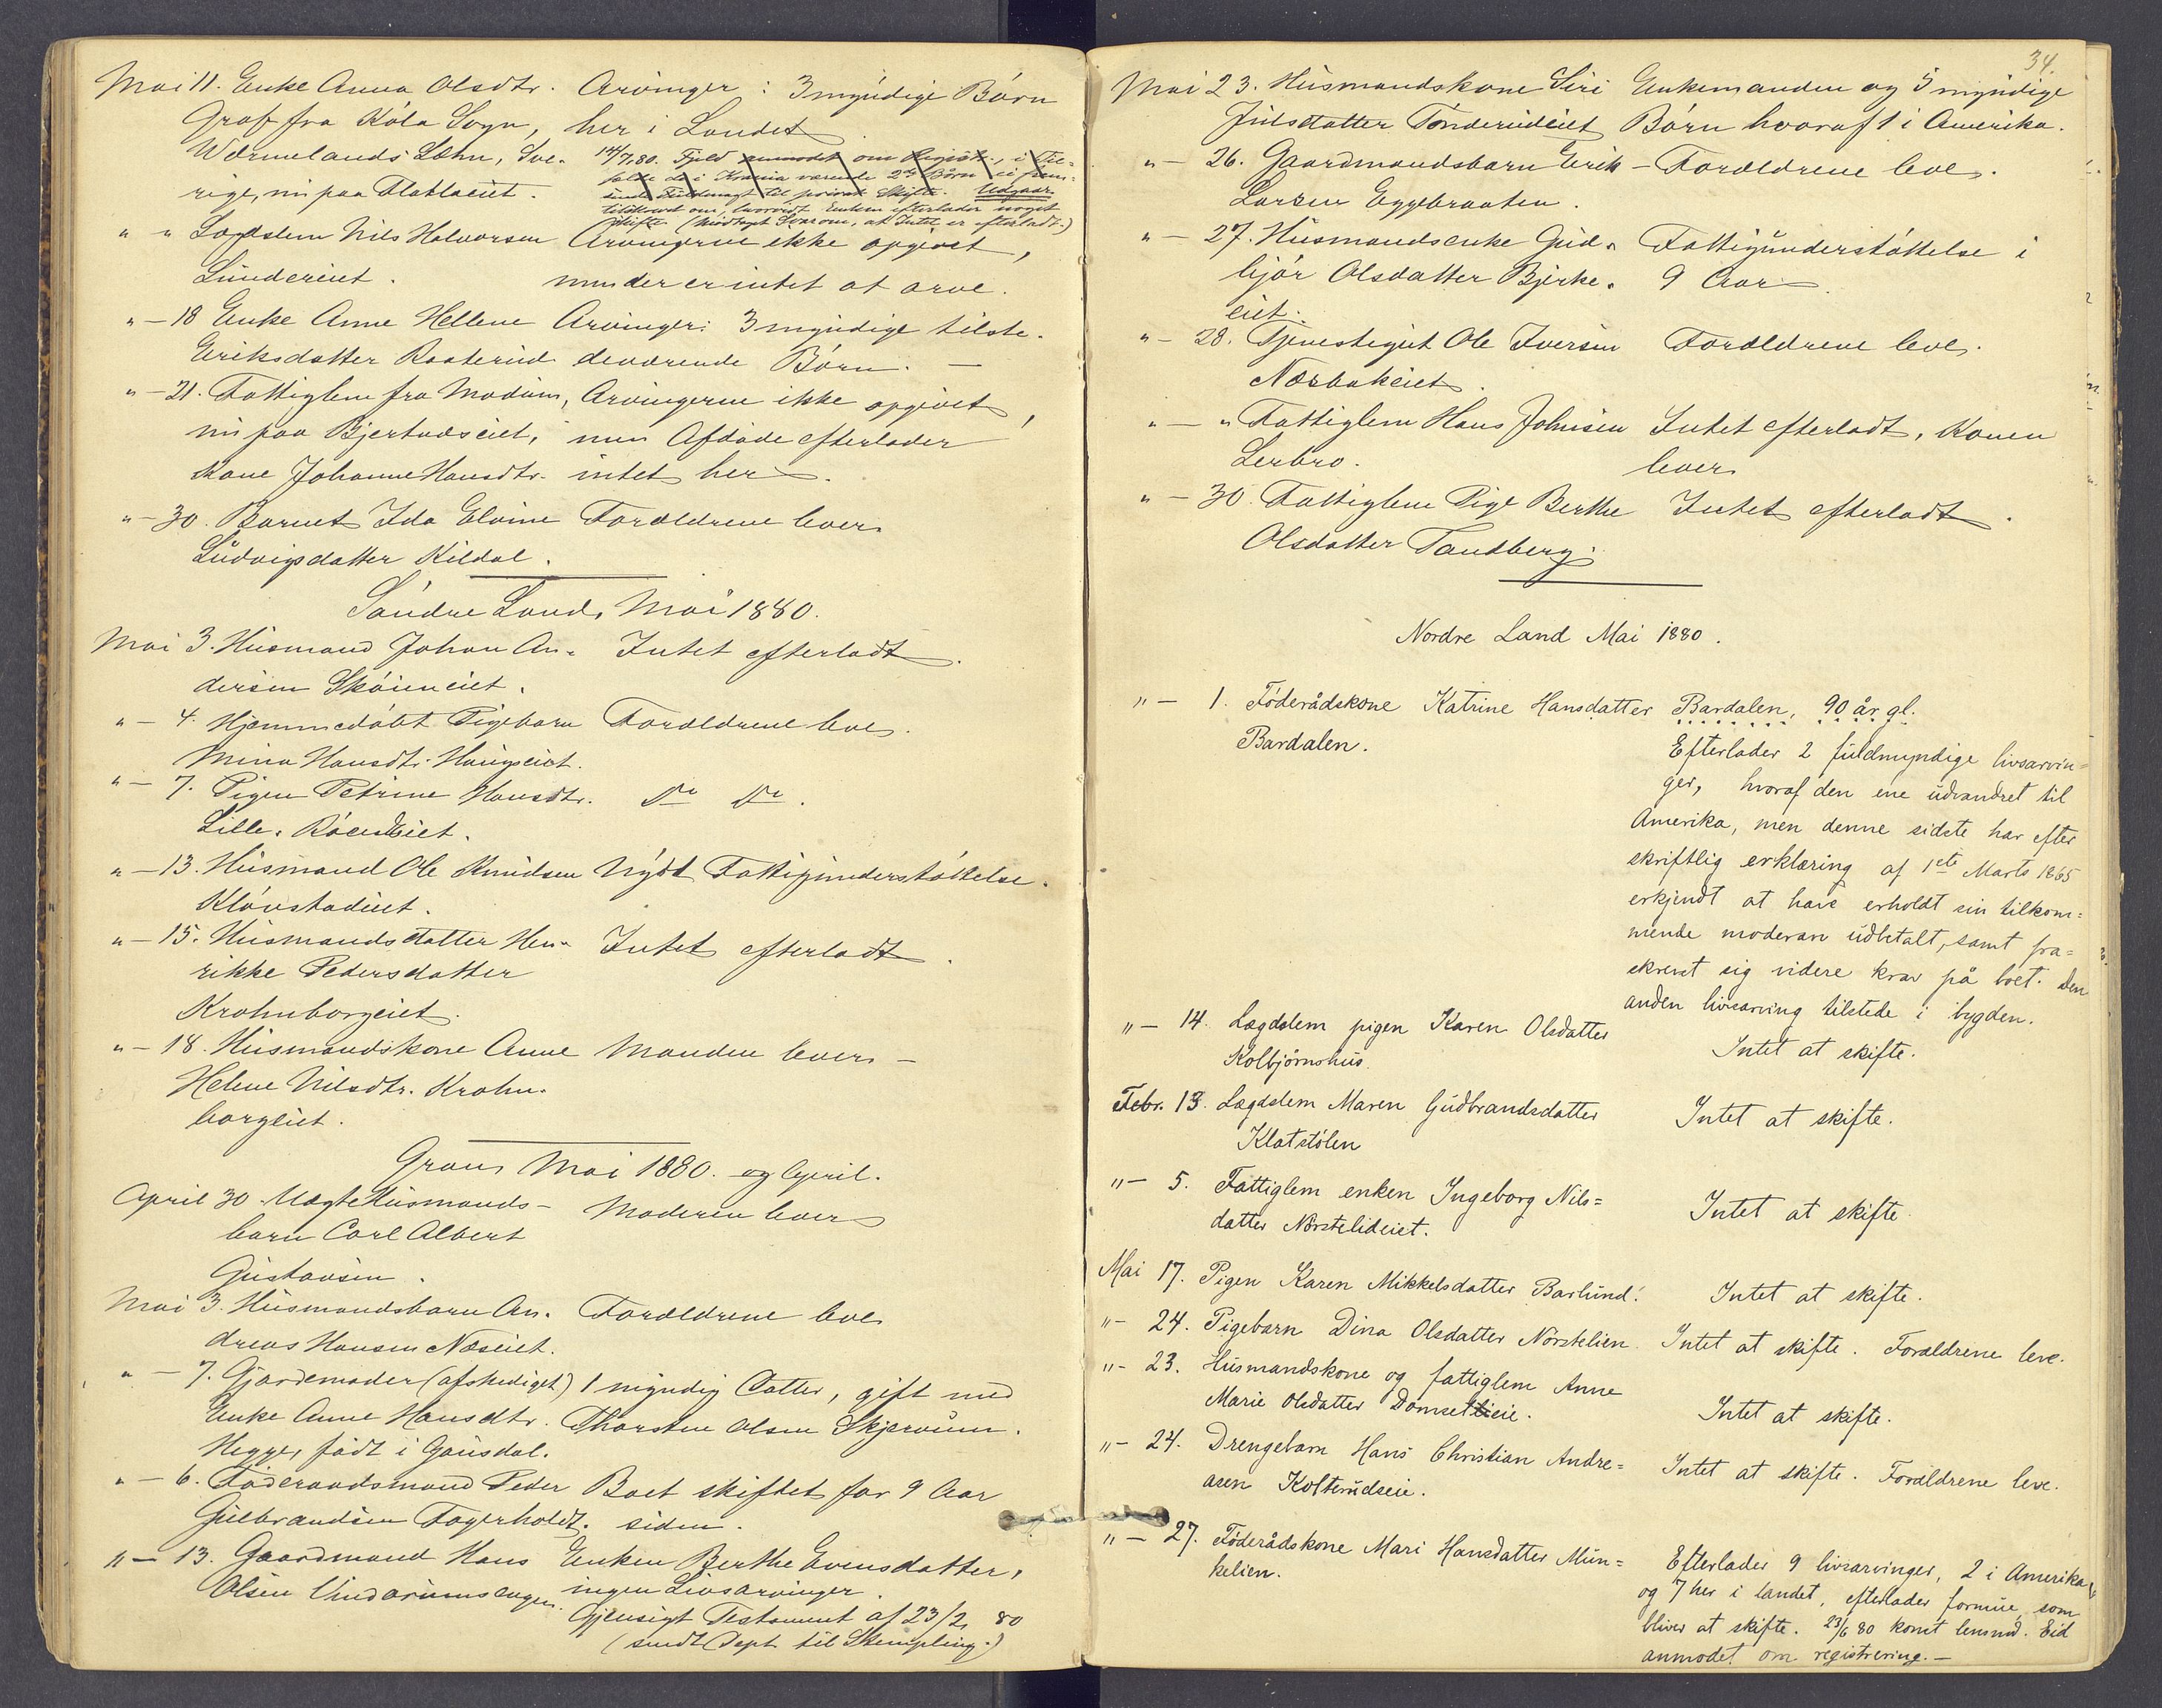 Mai 11. Enke Anna Olsdtr. Arvinger: 3 myndige Børn
Graf fra Køla Sogn, her i Landet
Wermelands Læhn, Sve- 14/7 80. Fjeld anmodet om Registr., i Til-
fælde de i Krania værende 2de Børn ei frem-
rige, nu paa Flatlaeiet. sende Fuldmagt til privat Skifte. Udgaar.
tilskrevet om, hvorvidt Enken efterlader noget
Skifte (Modtagt Svar om, at Intet er efterladt.)
" " Lægdslem Nils Halvorsen Arvingerne ikke opgivet,
Lundereiet. men der er intet at arve.
" – 18 Enke Anne Hellene Arvinger: 3 myndige tilste-
Eriksdatter Raaterud deværende Børn. –
" – 21. Fattiglem fra Modum, Arvingerne ikke opgivet,
nu paa Bjertnæseiet, men Afdøde efterlader
Kone Johanne Hansdtr. intet her.
" – 30. Barnet Ida Elvine Forældrene lever
Ludvigsdatter Kildal.
Søndre Land, Mai 1880.
Mai 3. Husmand Johan An- Intet efterladt.
dersen Skøieneiet.
" – 4. Hjemmedøbt Pigebarn Forældrene leve.
Mina Hansdtr. Haugseiet.
" – 7. Pigen Petrine Hansdtr. Do Do.
Lille-Røeneiet.
" – 13. Husmand Ole Knudsen Nydt Fattigunderstøttelse.
Kløvstadeiet.
" – 15. Husmandsdatter Hen- Intet efterladt.
rikke Pedersdatter
Krohnborgeiet.
" – 18. Husmandskone Anne Manden lever –
Helene Nilsdtr. Krohn-
borgeiet.
Gran, Mai 1880. og April.
April 30. Uægte Husmands- Moderen lever
barn Carl Albert
Gustavsen.
Mai 3. Husmandsbarn An- Forældrene leve
dreas Hansen Næseiet.
" – 7. Gjordemoder (afskediget) 1 myndig Datter, gift med
Enke Anne Hansdtr. Thorsten Olsen Skjervum.
Hegge, født i Gausdal.
" – 6. Føderaadsmand Peder Boet skiftet for 9 Aar
Gulbrandsen Fagerholdt. siden.
" – 13. Gaardmand Hans Enken Berthe Evensdatter,
Olsen Vindarumsengen. ingen Livsarvinger.
Gjensigt Testament af 23/2 80
(sendt Dept til Stempling.)
34.
Mai 23. Husmandskone Siri Enkemanden og 5 myndige
Julsdatter Tønderudeiet Børn hvoraf 1 i Amerika.
" – 26. Gaardmandsbarn Erik – Forældrene leve.
Larsen Eggebraaten.
" – 27. Husmandsenke Gud- Fattigunderstøttelse i
bjør Olsdatter Bjerke- 9 Aar.
eiet.
" – 28. Tjenestegut Ole Iversen Forældrene leve.
Næsbakeiet.
" – " Fattiglem Hans Johnsen Intet efterladt, Konen
Lerbro. lever
" – 30. Fattiglem Pige Berthe Intet efterladt.
Olsdatter Tandberg.
Nordre Land Mai 1880.
" – 1. Føderådskone Katrine Hansdatter Bardalen, 90 år gl.
Bardalen. Efterlader 2 fuldmyndige livsarvin=
ger, hvoraf den ene udvandret til
Amerika, men denne sidste har efter
skriftlig erklæring af 1ste Marts 1865
erkjendt at have erholdt sin tilkom=
mende moderarv udbetalt, samt fra=
skrevet sig videre krav på boet. Den
anden livsarving tilstede i bygden.
" – 14. Lægdslem pigen Karen Olsdatter Intet at skifte.
Kolbjørnshus.
Febr. 13. Lægdslem Maren Gudbrandsdatter Intet at skifte.
Klatstølen
" – 5. Fattiglem enken Ingeborg Nils= Intet at skifte.
datter Nørstelideiet.
Mai 17. Pigen Karen Mikkelsdatter Barlund. Intet at skifte.
" – 24. Pigebarn Dina Olsdatter Nørstelien. Intet at skifte. Forældrene leve.
" – 23. Husmandskone og fattiglem Anne
Marie Olsdatter Domsetlieie. Intet at skifte.
" – 24. Drengebarn Hans Christian Andre= Intet at skifte. Forældrene leve.
asen Kolterudseie.
" – 27. Føderådskone Mari Hansdatter Mün= Efterlader 9 livsarvinger, 2 i Amerika
kelien. og 7 her i landet, efterlader formue, som
bliver at skifte. 23/6 80 konst lensmd. Eid
anmodet om registrering. –